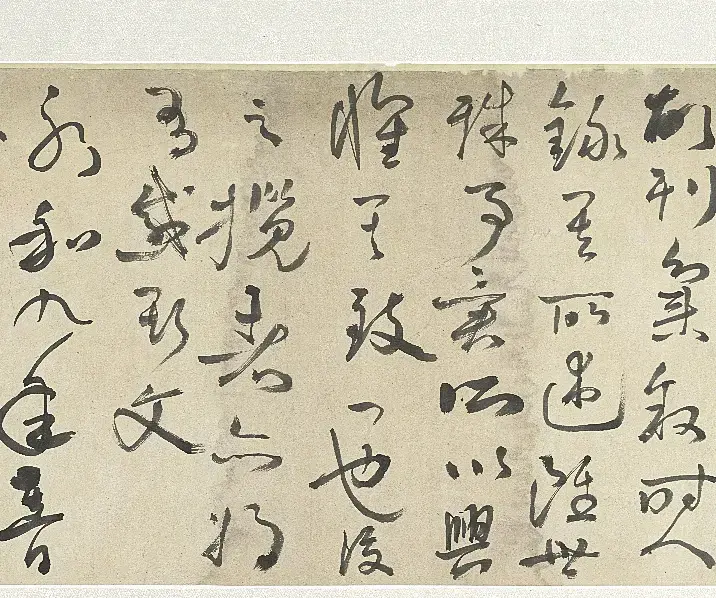 故列集敘時人
錄其所述雖世
殊事異所以興
懷其致一也後
之攬者亦將
有感斯文
永和九年暮